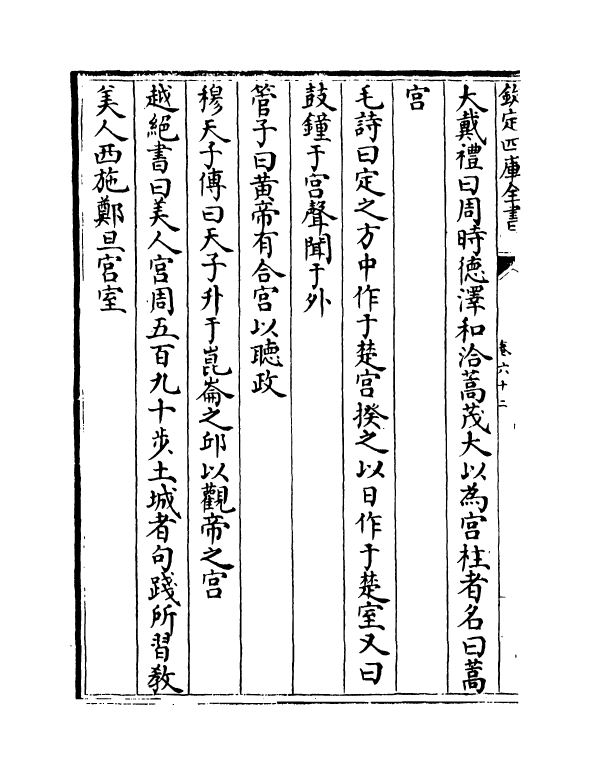 欽定四庫全書
卷六十二
大戴禮曰周時徳澤和洽蒿茂大以為宮柱者名曰蒿
宮
毛詩曰定之方中作于楚宮揆之以日作于楚室又曰
鼓鐘于宮聲聞于外
管子曰黄帝有合宮以聽政
穆天子傳曰天子升于崑崙之邱以觀帝之宮
越絕書曰美人宮周五百九十步土城者句踐所習教
美人西施鄭旦宮室